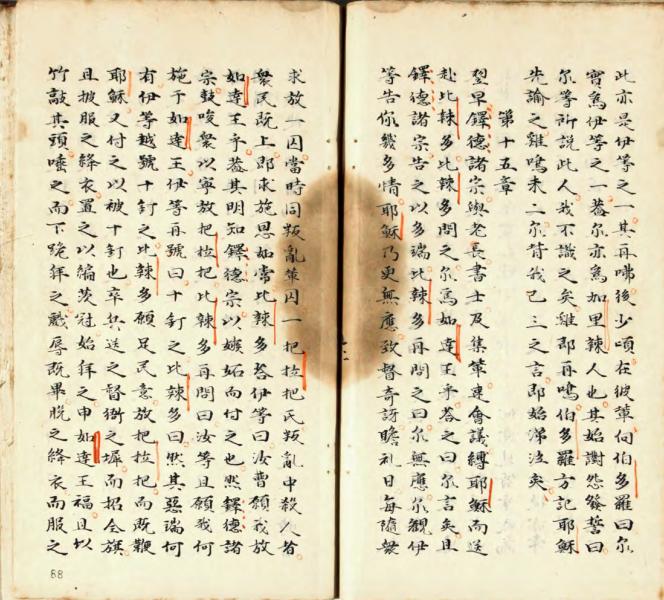 此亦是伊等之一其再咈後少頃在彼輩向伯多羅曰尔
實為伊等之一蓋尔亦為加里辣人也其始譵怨發誓曰
尔等所說此人我不識之矣雞即再鳴伯多羅方記耶穌
先諭之雞鳴未二尔背我已三之言即始涕泣矣
第十五章
翌早鐸德諸宗與老長書士及集輩速會議縛耶穌而送
赴比辣多比辣多問之尔為如達王乎答之曰尔言矣且
鐸德諸宗告之以多端比辣多再問之曰尔無應尔觀伊
等告你幾多情耶穌乃更無應致督奇訝瞻礼日每隨衆
求放一囚當時同叛亂輩囚一把拉把氏叛亂中殺人者
衆民既上即求施恩如常比辣多答伊等曰汝曹願我放
如達王乎蓋其明知鐸德宗以嫉妬而付之也然鐸德諸
宗鼓唆衆以寧放把拉把比辣多再問曰汝等且願我何
施于如達王伊等再號曰十釘之比辣多曰然其惡端何
有伊等越號十釘之比辣多願足民意放把拉把而既鞭
耶穌又付之以被十釘也卒兵送之督衙之墀而招全旗
且披服之絳衣置之以編茨冠始拜之申如達王福且以
竹敲其頭唾之而下跪拜之戲辱既畢脫之絳衣而服之
88